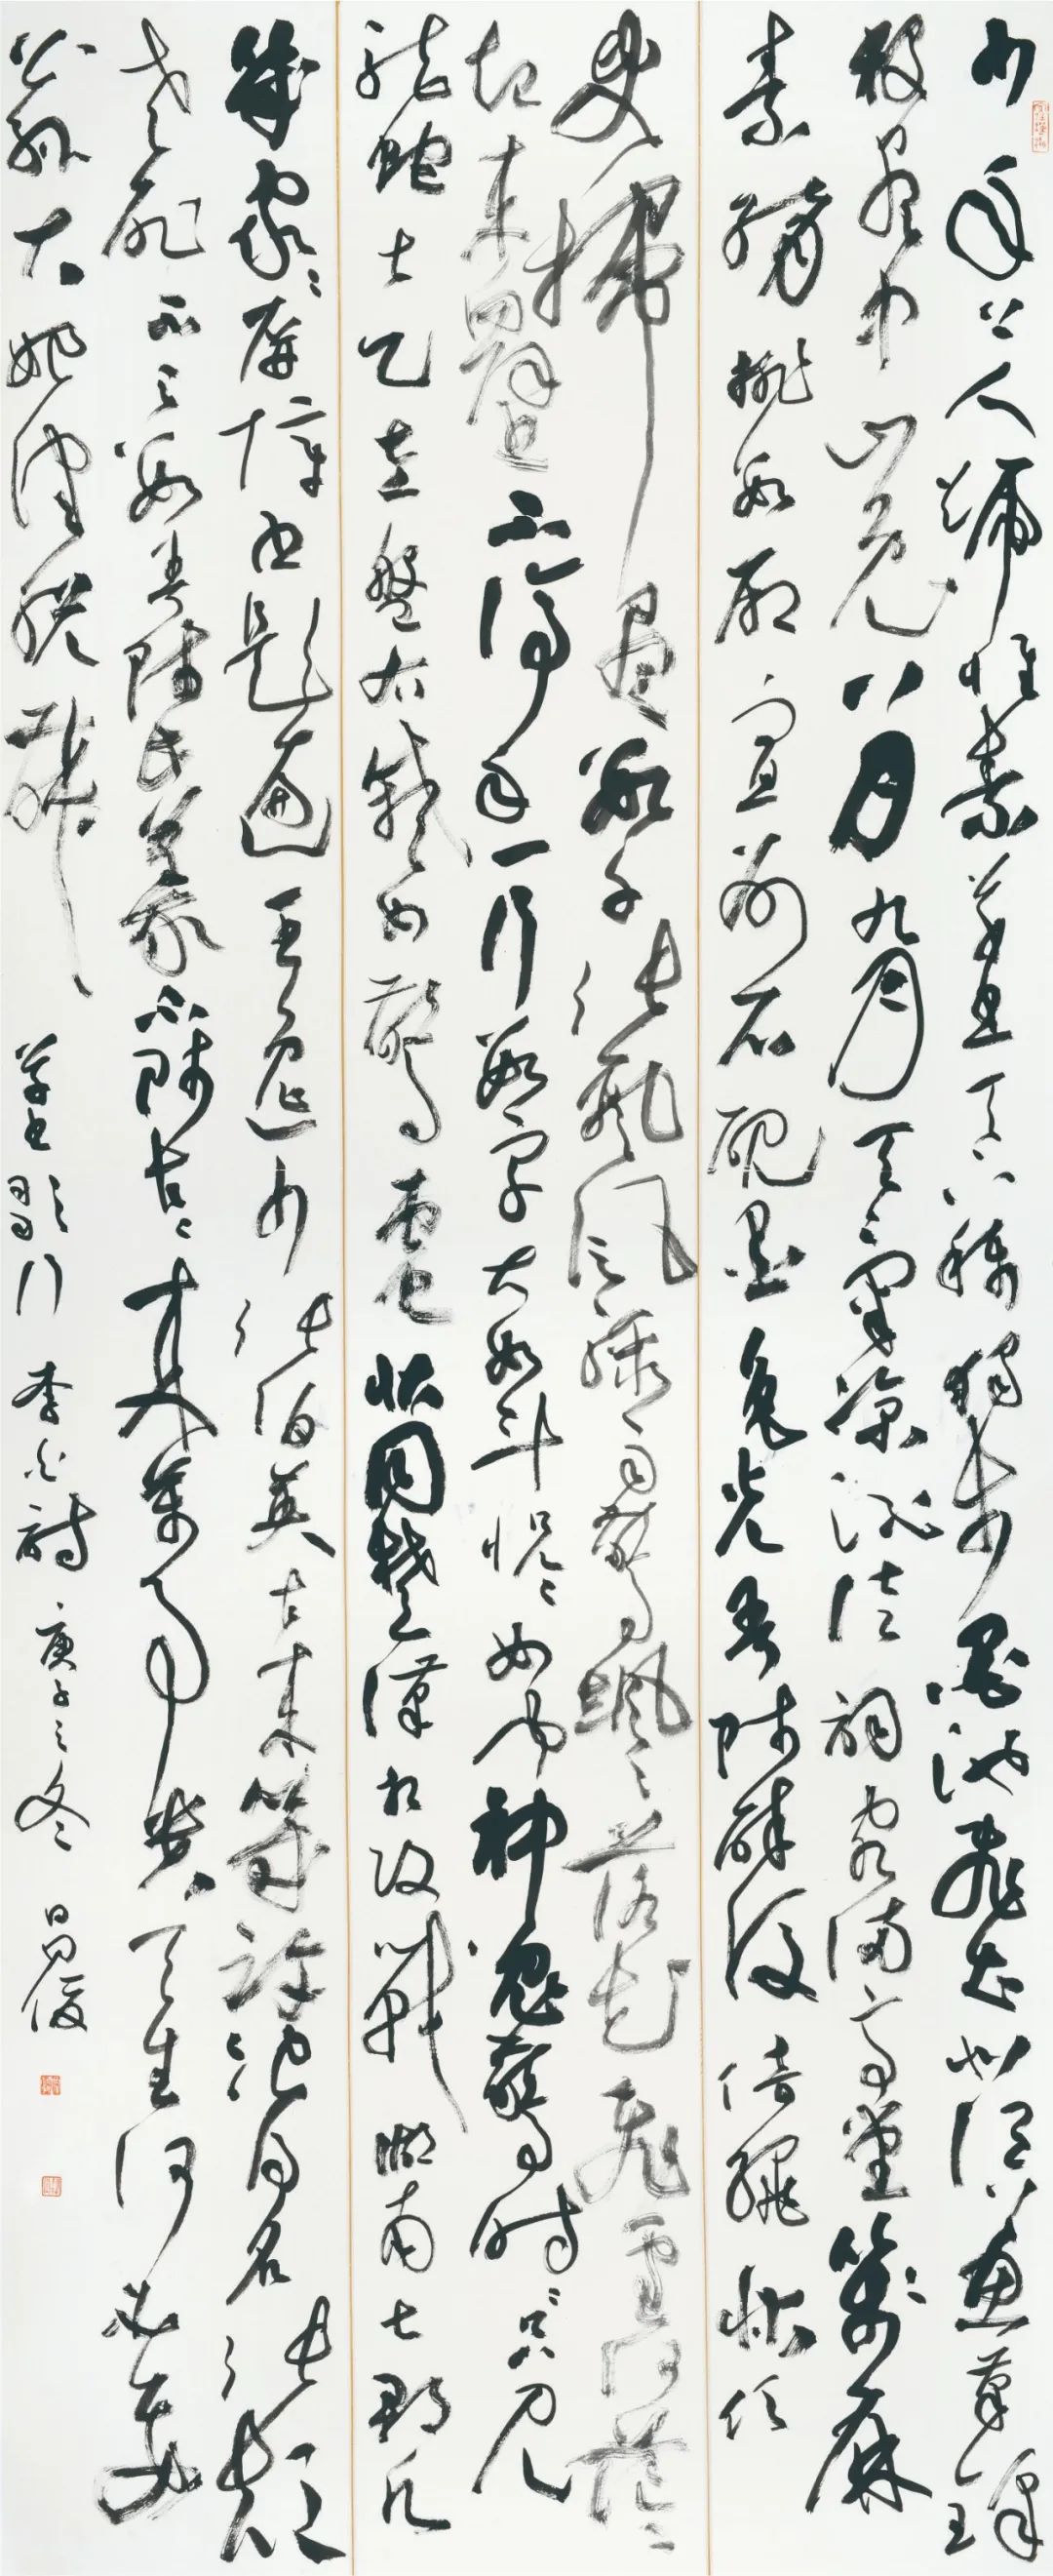 少年上人號懷素草書天下稱獨步墨池飛出北溟魚筆鋒
殺盡中山兔八月九月天氣涼酒徒詞客滿高堂箋麻
素絹排數廂宣州石硯墨色光吾師醉後倚繩床須
臾掃盡數千張飄風驟雨驚颯颯落花飛雪何茫茫
起來向壁不停手一行數字大如斗怳怳如聞神鬼驚時時只見
龍蛇走左盤右蹙如驚電狀同楚漢相攻戰湖南七郡凡
幾家家家屏障書題遍王逸少張伯英古來幾許浪得名張顛
老死不足數吾師此義不師古古來萬事貴天生何必要
公孫大娘渾脫舞 草書歌行 李白詩 庚子之冬